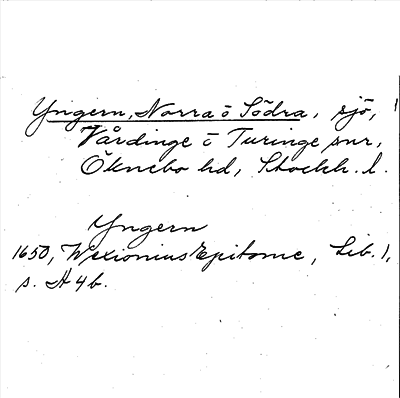 Yngern, Norra o Södra, sjö,
Vårdinge o Turinge snr,
Öknebo hd, Stockh. l.
Yngern
1650, Wexionius Epitome, Lib. 1,
s. A 4 b.